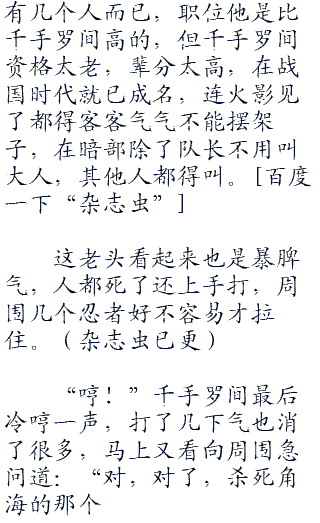 有几个人而已，职位他是比
千手罗间高的，但千手罗间
资格太老，辈分太高，在战
国时代就已成名，连火影见
了都得客客气气不能摆架
子，在暗部除了队长不用叫
大人，其他人都得叫。[百度
一下“杂志虫”]
这老头看起来也是暴脾
气，人都死了还上手打，周
围几个忍者好不容易才拉
住。（杂志虫已更）
“哼！”千手罗间最后
冷哼一声，打了几下气也消
了很多，马上又看向周围急
问道：“对，对了，杀死角
海的那个